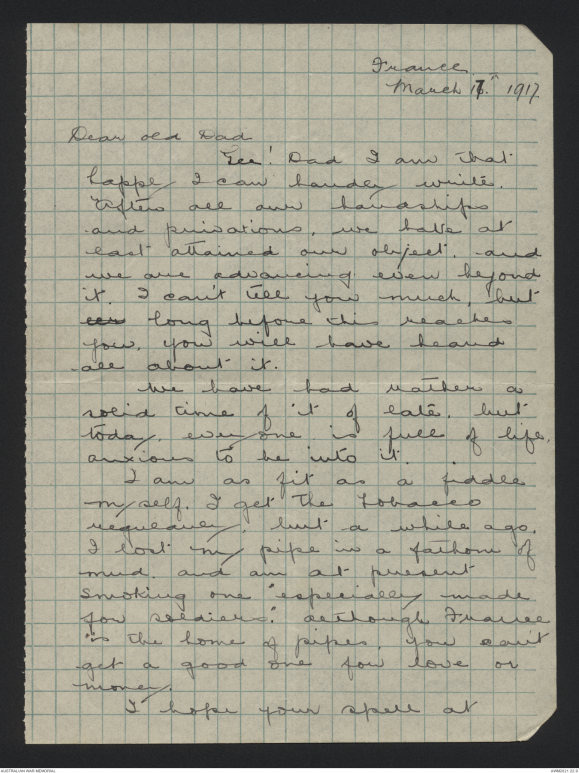 France
March 17th 1917
Dear old Dad
Gee! Dad I am that
happy I can hardly write.
After all our hardships
and privations, we have at
last attained our object, and
we are advancing even beyond
it. I can't tell you much, but
long before this reaches
you, you will have heard
all about it.
We have had rather a
solid time of it of late, but
today, everyone is full of life,
anxious to be into it.
I am as fit as a fiddle
myself. I get the tobacco
regularly, but a while ago,
I lost my pipe in a fathom of
mud, and am at present
smoking one "especially made
for soldiers." although France
is the home of pipes, you can't
get a good one for love or
money.
I hope your spell at
AUSTRALIAN WAR MEMORIAL